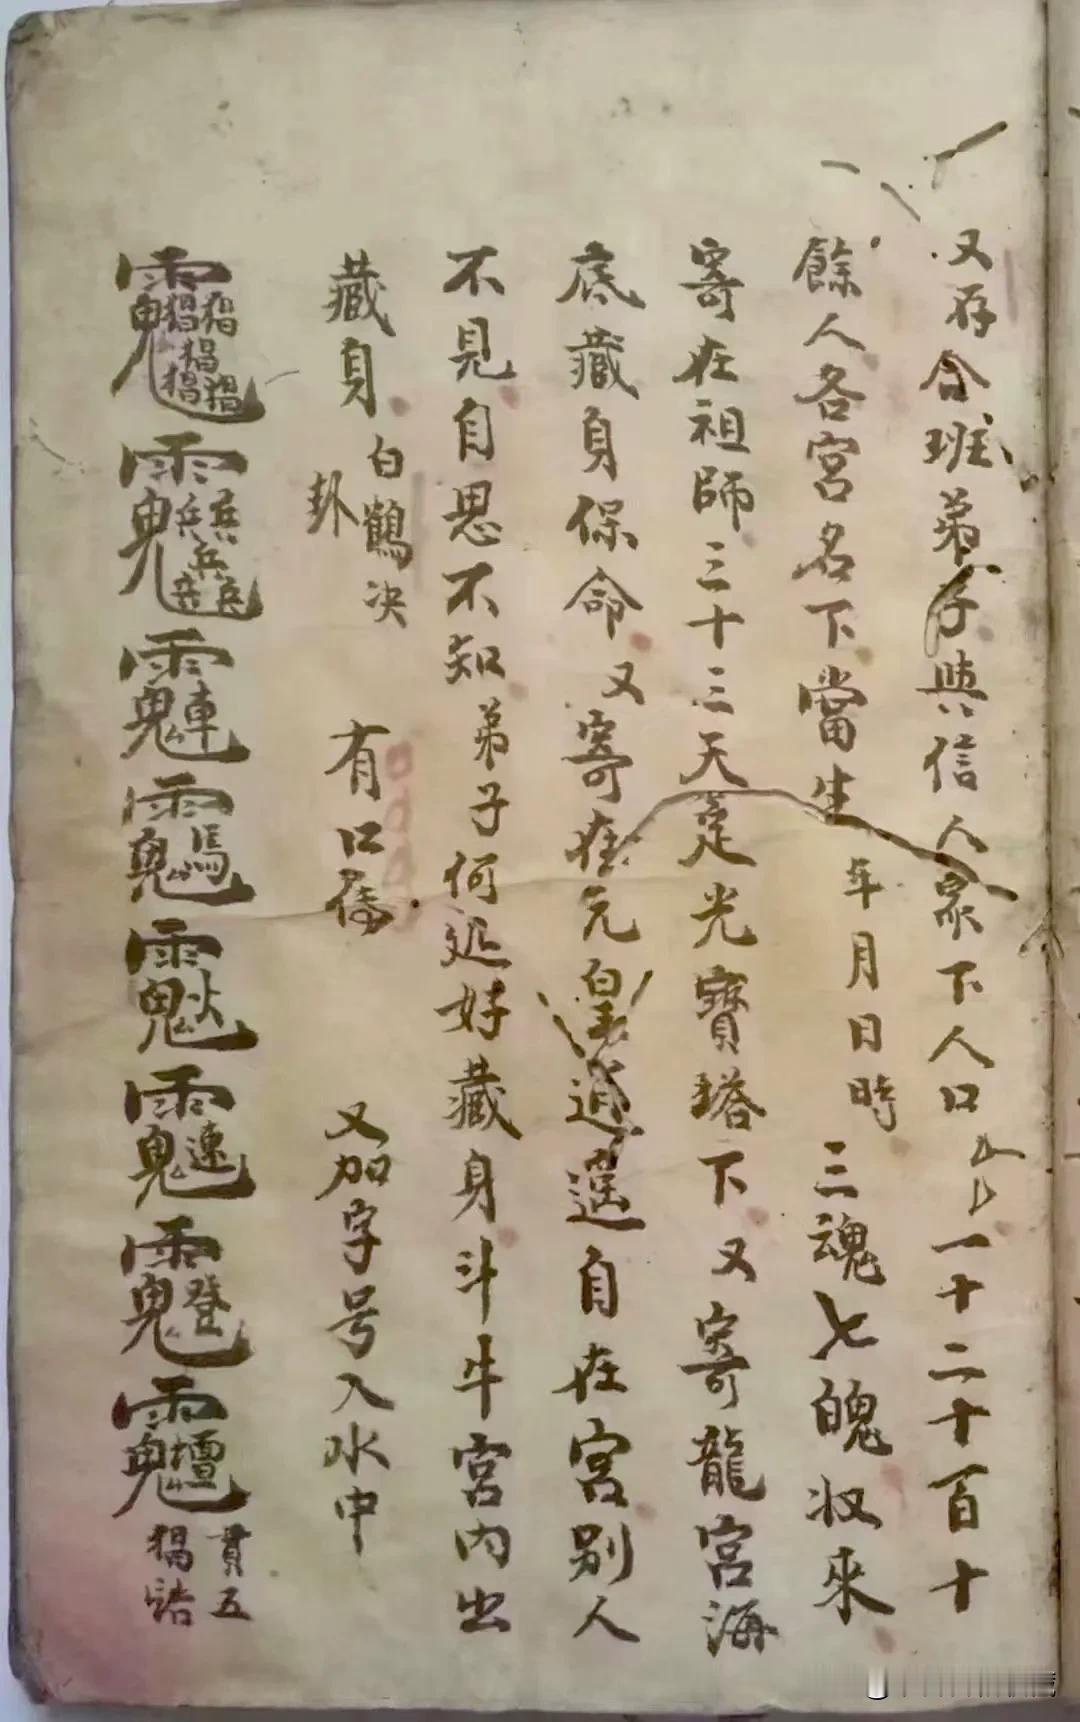 又存合班弟子與信人眾下人口一十二十百十
餘人各宮名下當生年月日時三魂七魄收來
寄在祖師三十三天毫光寶塔下又寄龍宮海
底藏身保命又寄在元皇逍遥自在宮别人
不見自思不知弟子何延好藏身斗牛宮内出
藏身
白鶴决
卦
有口傳
又加字号入水中
貫五
猖諳